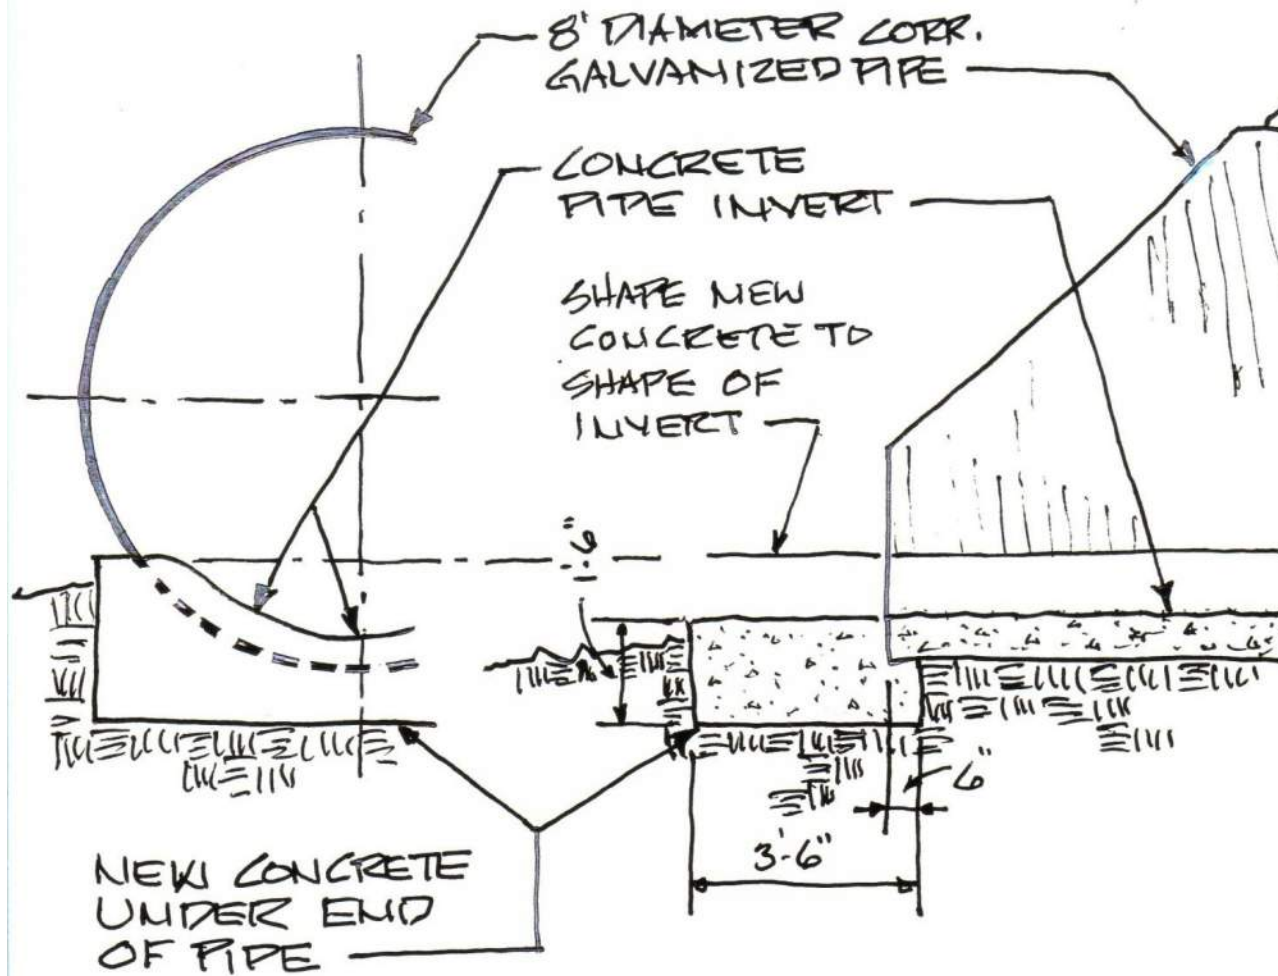 8' DIAMETER CORR.
GALVANIZED PIPE
CONCRETE
PIPE INVERT
SHAPE NEW
CONCRETE TO
SHAPE OF
INVERT
1'-6"
6"
3'-6"
NEW CONCRETE
UNDER END
OF PIPE